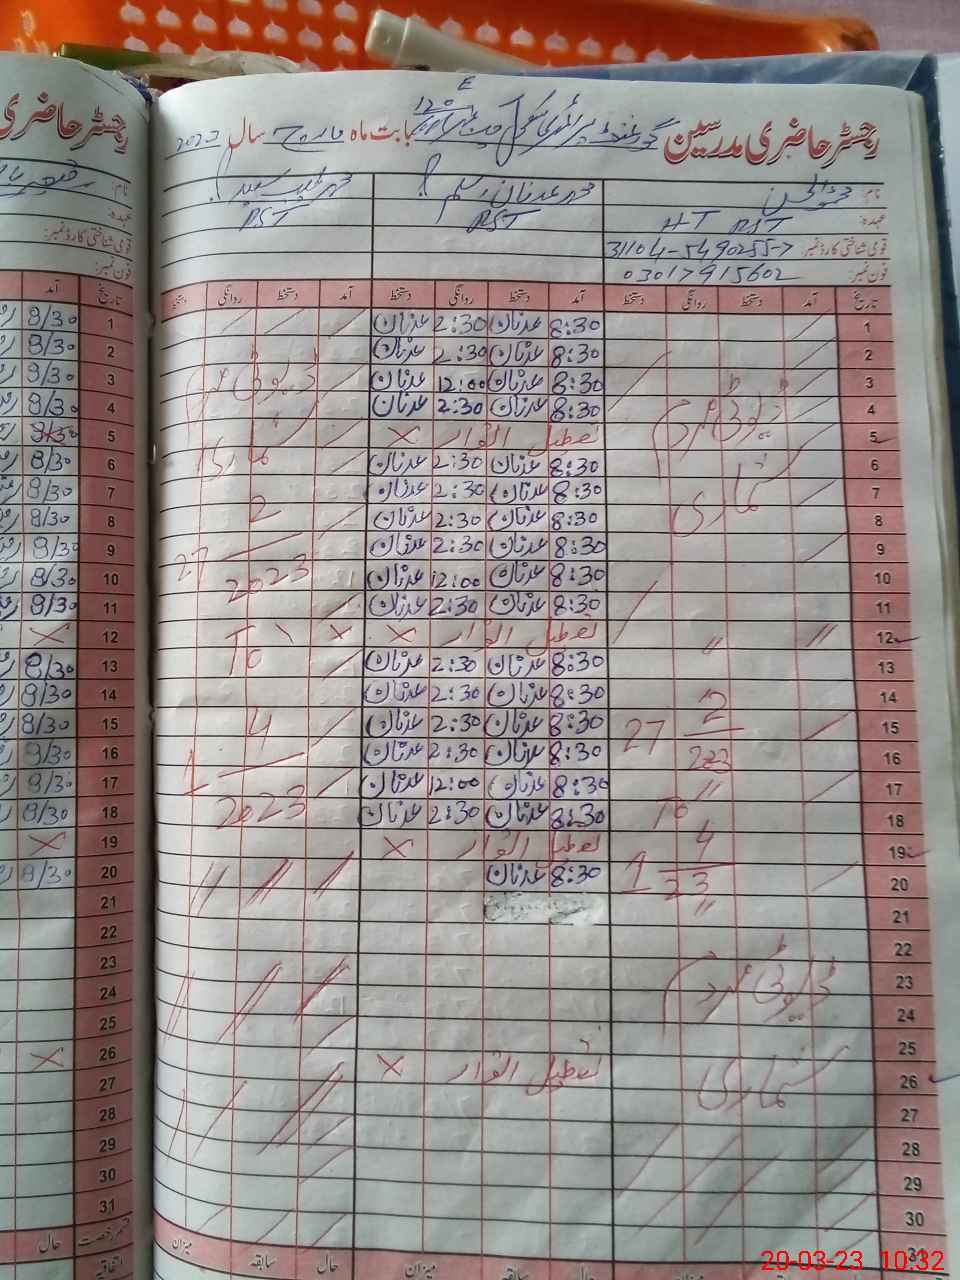 رجسٹر حاضری مدرسین گورنمنٹ پرائمری سکول 120 E بابت ماہ مارچ سال 2023
نام: عہدہ: H-T PST
قومی شناختی کارڈ نمبر: 31104-5490255-7
فون نمبر: 03017915602
محمد عدنان PST
PST
تاریخ آمد دستخط روانگی دستخط آمد دستخط روانگی دستخط آمد دستخط روانگی دستخط
1 8:30 عدنان 2:30 عدنان
2 8:30 عدنان 2:30 عدنان
3 8:30 عدنان 12:00 عدنان
4 8:30 عدنان 2:30 عدنان
5 تعطیل اتوار ×
6 8:30 عدنان 2:30 عدنان
7 8:30 عدنان 2:30 عدنان
8 8:30 عدنان 2:30 عدنان
9 8:30 عدنان 2:30 عدنان
10 8:30 عدنان 12:00 عدنان
11 8:30 عدنان 2:30 عدنان
12 تعطیل اتوار × ×
13 8:30 عدنان 2:30 عدنان
14 8:30 عدنان 2:30 عدنان
15 8:30 عدنان 2:30 عدنان
16 8:30 عدنان 2:30 عدنان
17 8:30 عدنان 12:00 عدنان
18 8:30 عدنان 2:30 عدنان
19 تعطیل اتوار ×
20 8:30 عدنان
21
22
23
24
25
26 تعطیل اتوار ×
27
28
29
30
31
ڈیوٹی مردم شماری
27 2 223 To 1 4 23
ڈیوٹی مردم شماری
ڈیوٹی مردم شماری
27 2 2023 To 1 4 2023
حال سابقہ میزان
رجسٹر حاضری
نام:
عہدہ:
قومی شناختی کارڈ نمبر:
فون نمبر:
تاریخ آمد
1 8/30
2 8/30
3 8/30
4 8/30
5
6 8/30
7 8/30
8 8/30
9 8/30
10 8/30
11 8/30
12 ×
13 8/30
14 8/30
15 8/30
16 8/30
17 8/30
18 8/30
19 ×
20 8/30
21
22
23
24
25
26 ×
27
28
29
30
31
قسم رخصت حال
اتفاقیہ
20-03-23 10:32